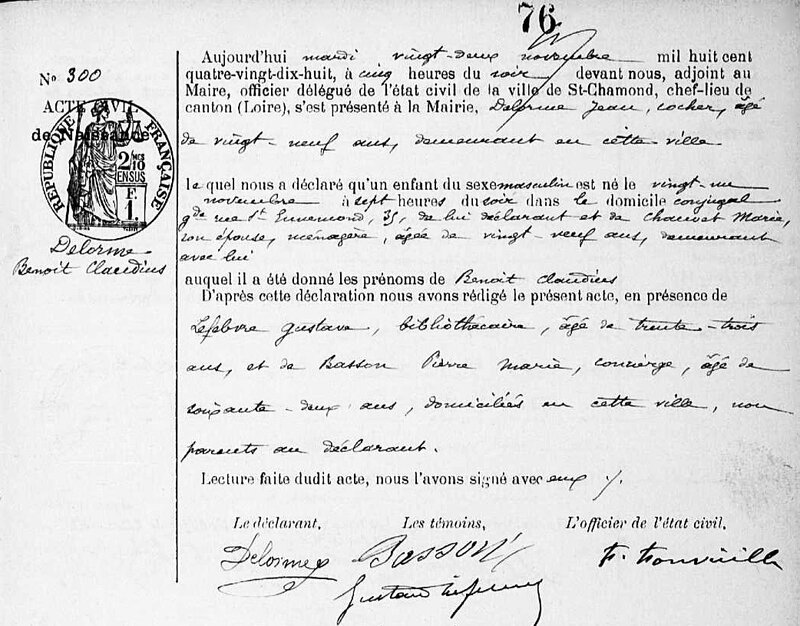 76
No 300
ACTE CIVIL
de Naissance
RÉPUBLIQUE FRANÇAISE
2/10 EN SUS
F 1.
Delorme
Benoit Claudius
Aujourd'hui mardi vingt-deux novembre mil huit cent
quatre-vingt-dix-huit, à cinq heures du soir devant nous, adjoint au
Maire, officier délégué de l'état civil de la ville de St-Chamond, chef-lieu de
canton (Loire), s'est présenté à la Mairie, Delorme Jean, cocher, âgé
de vingt-neuf ans, demeurant en cette ville
lequel nous a déclaré qu'un enfant du sexe masculin est né le vingt-un
novembre à sept heures du soir dans le domicile conjugal
gde rue St Ennemond, 35, de lui déclarant et de Chauvet Marie,
son épouse, ménagère, âgée de vingt-neuf ans, demeurant
avec lui
auquel il a été donné les prénoms de Benoit Claudius
D'après cette déclaration nous avons rédigé le présent acte, en présence de
Lefebvre Gustave, bibliothécaire, âgé de trente-trois
ans, et de Basson Pierre Marie, concierge, âgé de
soixante-deux ans, domiciliés en cette ville, non
parents au déclarant.
Lecture faite dudit acte, nous l'avons signé avec eux
Le déclarant, Les témoins, L'officier de l'état civil.
Delorme Basson
Gustave Lefebvre